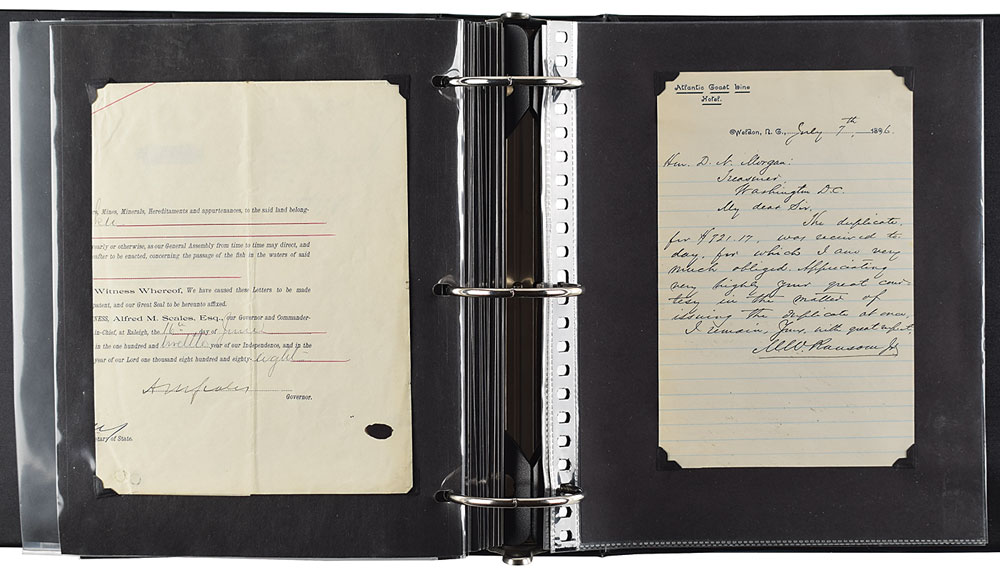 Mines, Minerals, Hereditaments and appurtenances, to the said land belong-
yearly or otherwise, as our General Assembly from time to time may direct, and
after to be enacted, concerning the passage of the fish in the waters of said
Witness Whereof, We have caused these Letters to be made
patent, and our Great Seal to be hereunto affixed.
NESS, Alfred M. Scales, Esq., our Governor and Commander-
in-Chief, at Raleigh, the 16th day of
in the one hundred and twelfth year of our Independence, and in the
year of our Lord one thousand eight hundred and eighty-eight
A M Scales
Governor.
etary of State.
Atlantic Coast Line
Hotel.
Weldon, N. C., July 7th 1896.
Hon. D. N. Morgan:
Treasurer
Washington D.C.
My dear Sir,
The duplicate,
for $921.17, was received to-
day, for which I am very
much obliged. Appreciating
very highly your great cour-
tesy in the matter of
issuing the duplicate at once,
I remain, Yours, with great respect
M W. Ransom Jr